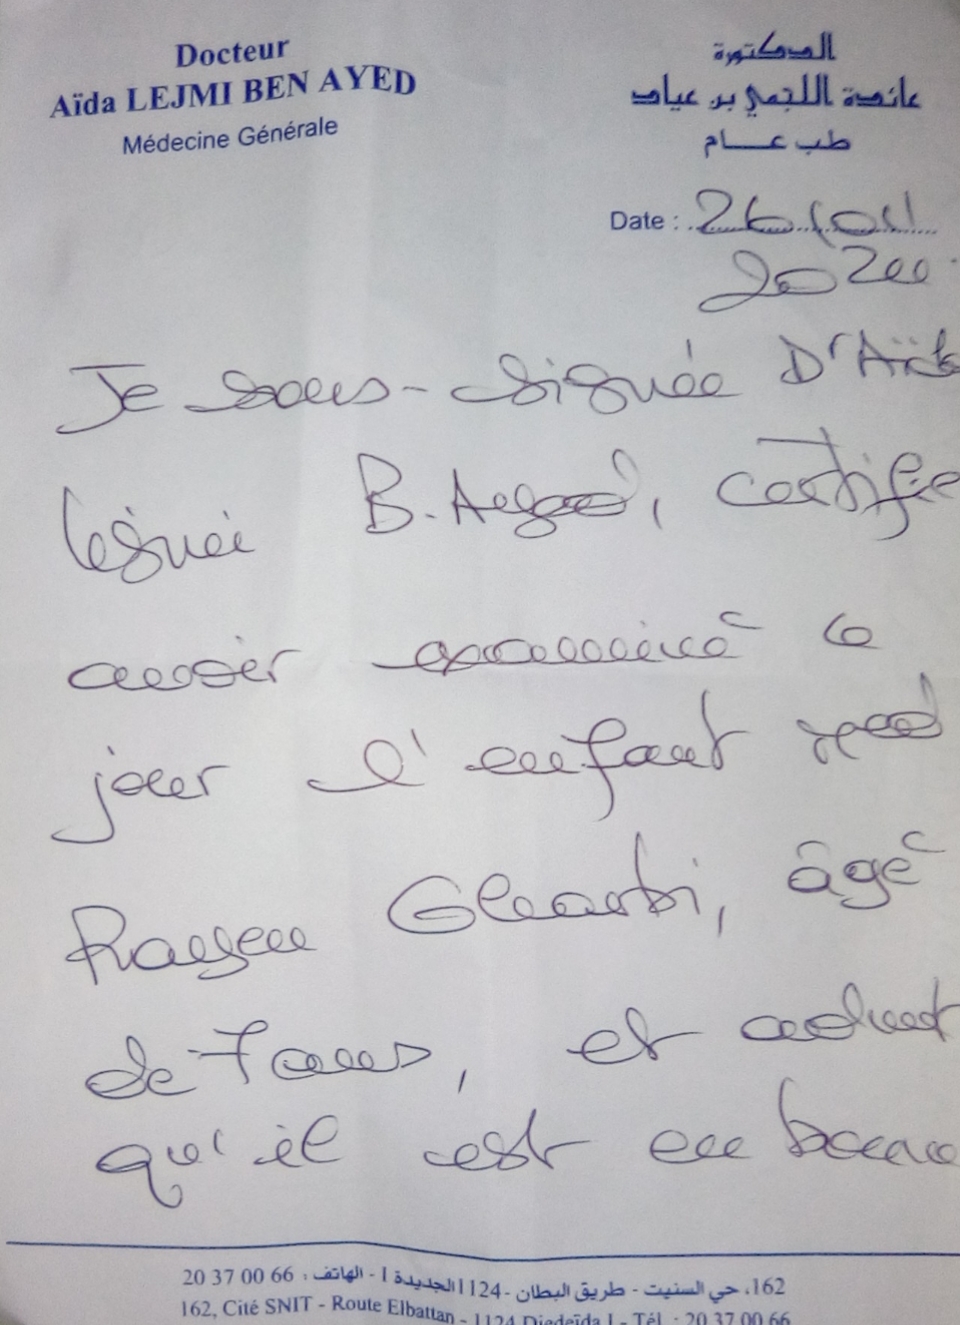 Docteur
Aïda LEJMI BEN AYED
Médecine Générale
الدكتورة
عائدة اللجمي بن عياد
طب عــــام
Date :
Je sous-signée Dr Aïda
B. Ayed, certifie
avoir examiné ce
jour l'enfant
Rayen Gharbi, âgé
de 7 ans, et
qu'il est en bonne
162، حي السنيت - طريق البطان - 1124 الجديدة I - الهاتف : 66 00 37 20
162, Cité SNIT - Route Elbattan - 1124 Djedeïda I - Tél. : 20 37 00 66